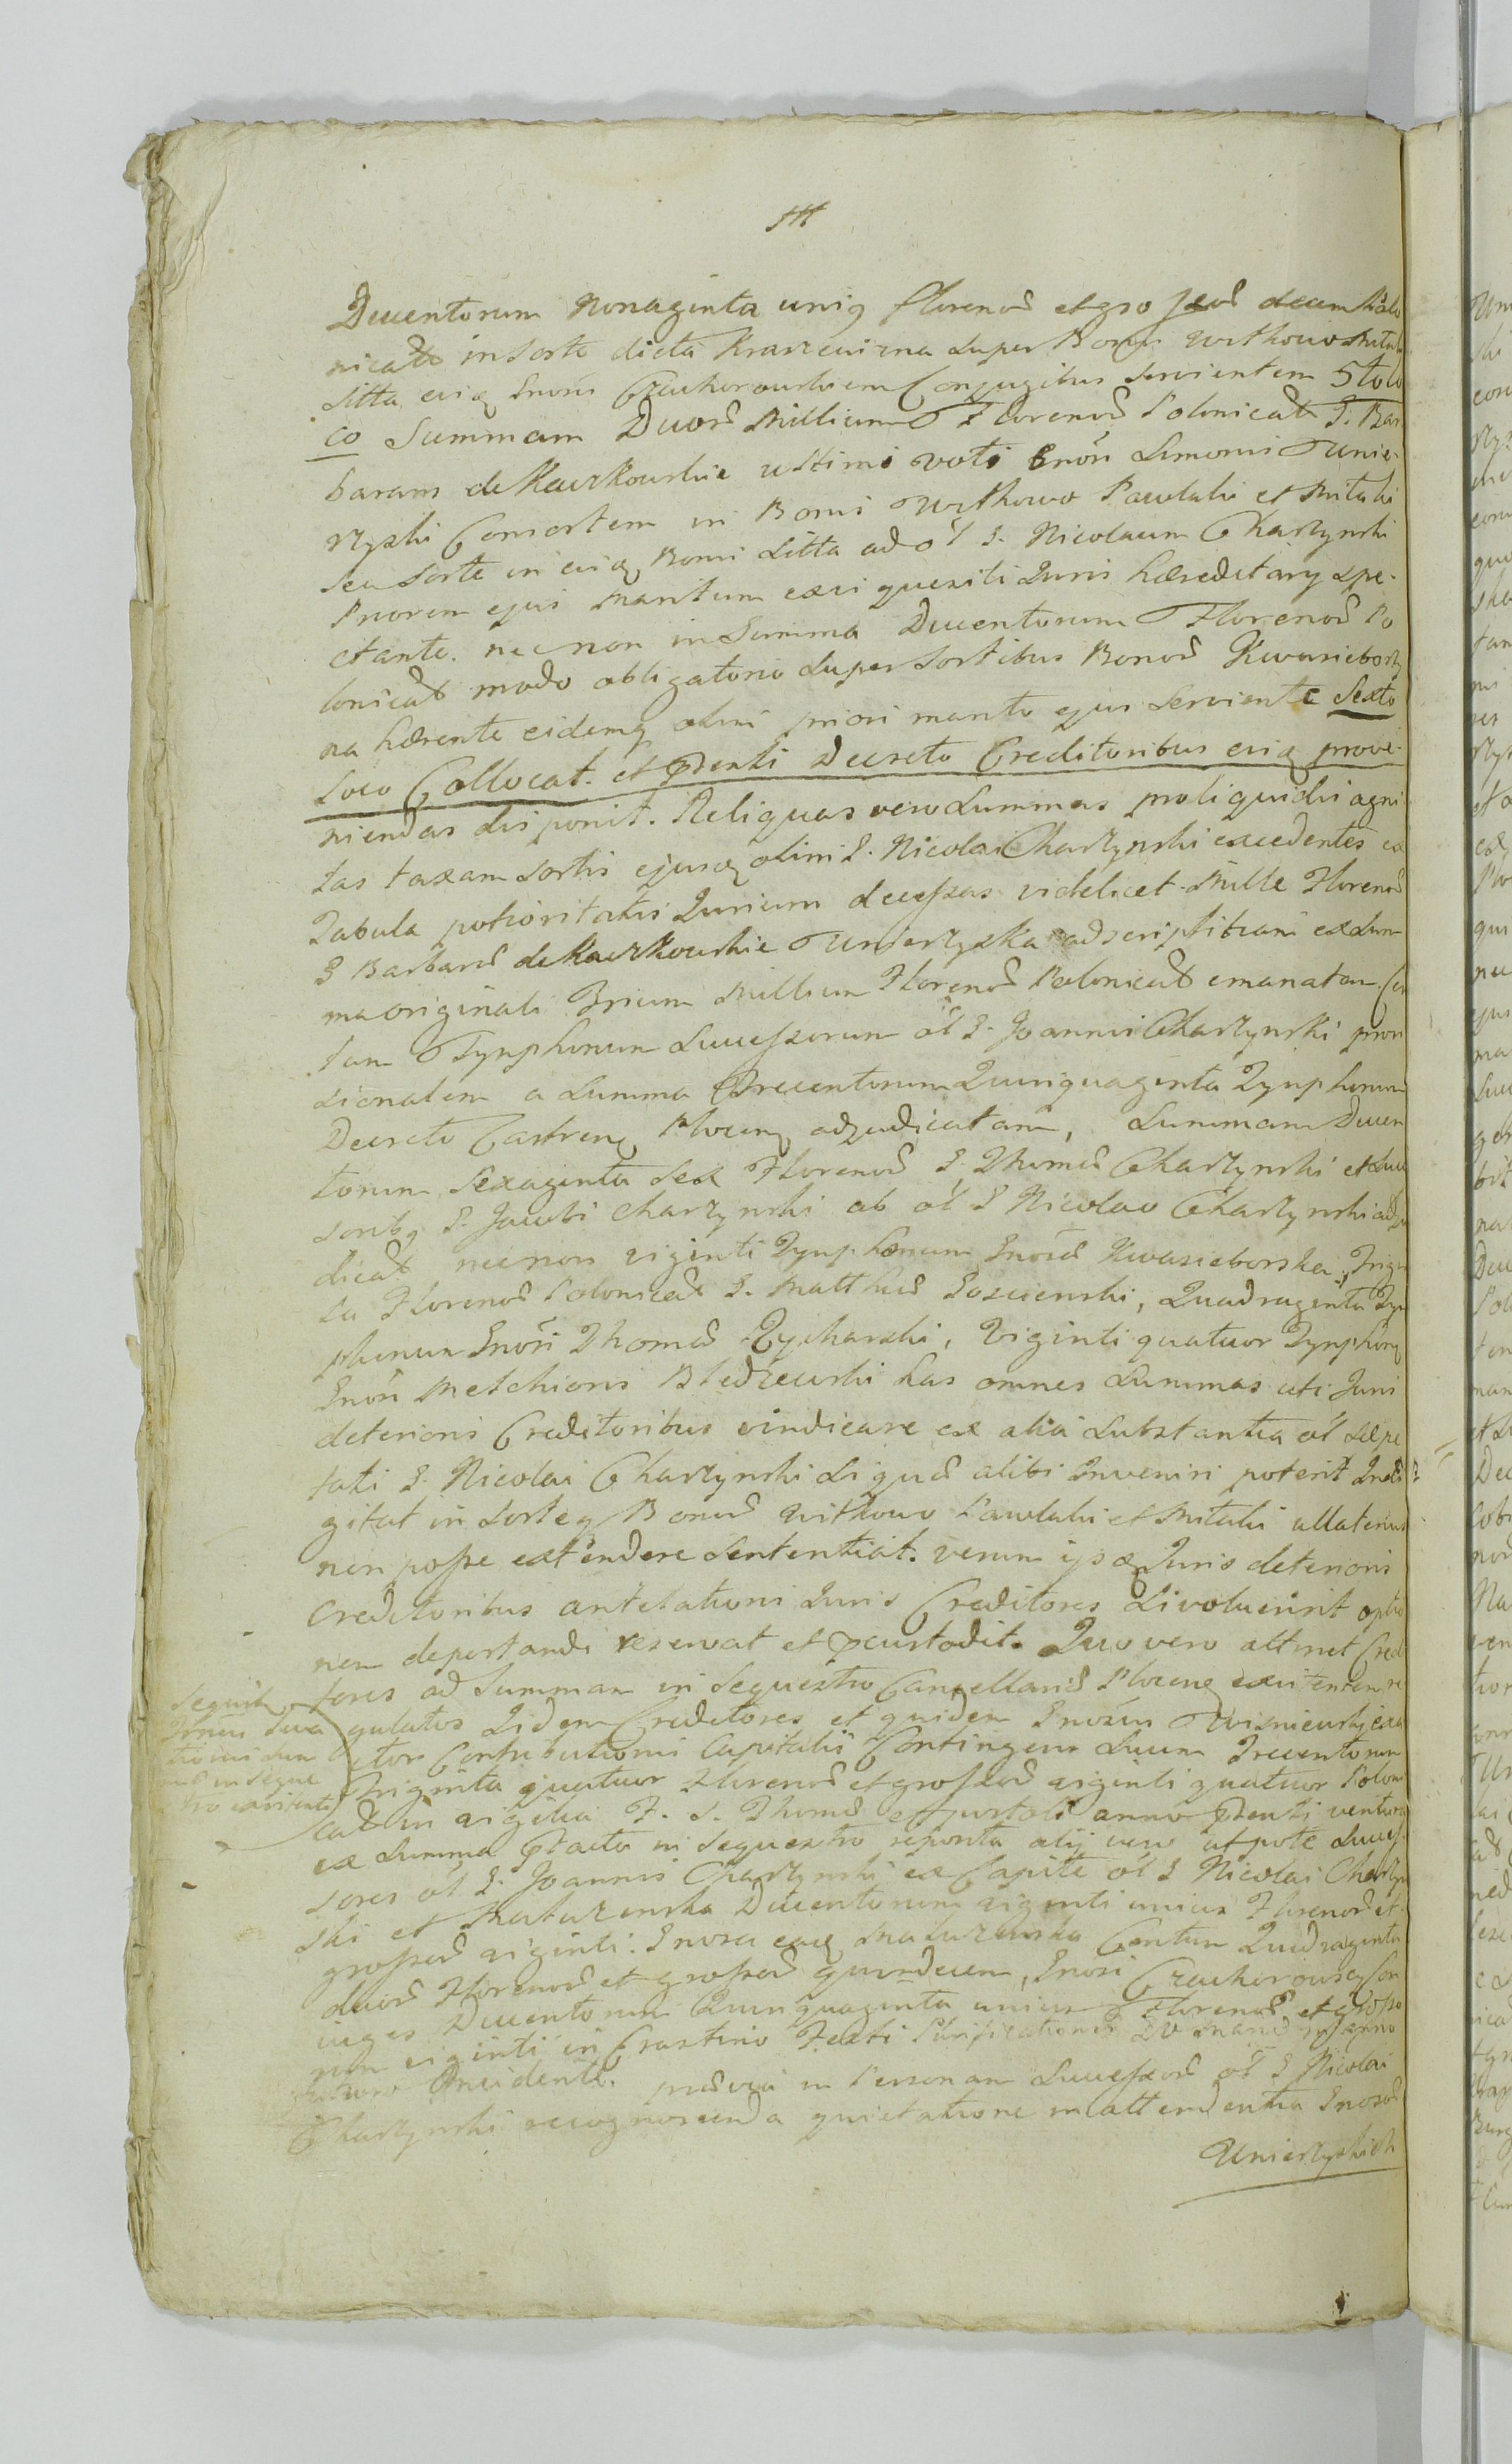 Ducentorum Nonaginta uniq florenor et grossor decem Polo
nicals in sorte dicta Kraszewizna super Bonis Witkowo Mitul
sitta eisq Gnosis Czachorowskiem Conjugibus servientem 5to lo
co Summam Duor Millium Florenor Polonical G. Bar
baram de Kaczkowskie ultimi voti Gnosi Simonis Unie-
rzyski Consortem in Bonis Witkowo Pawlaki et Mitulki
seu sorte in eisq Bonis sitta ad ol G. Nicolaum Charzynski
Priorem ejus Maritum exvi quesiti Juris hæreditary spe-
ctante. nec non in Summa Ducentorum Florenor Po
lonical modo obligatorio super sortibus Bonor Kwasiebors
na hærente eidemq olim priori marito ejus serviente Sexto
loco Collocat. et Præsenti Decreto Creditoribus eisq prove-
niendas disponit. Reliquas vero Summas pro liquidis agni
tas taxam sortis ejusq olim G. Nicolai Charzynski excedentes ex
Tabula potioritatis Jurium decessas videlicet Mille Florenor
G Barbaræ de Kaczkowskie Unierzyska adscriptitiam ex Sum
ma originali Trium Millium Florenor Polonical emanatam Cen
tum Tynphonum Successorum ol G. Joannis Charzynski provi
sionalem a Summa Trecentorum Quinquaginta Tynphonum
Decreto Castrens Plocens adjudicatam, Summam Ducen
torum Sexaginta Sex Florenor G. Thomæ Charzynski et Succ
soribq G. Jacobi Charzynski ab ol G Nicolao Charzynski adju
dical necnon viginti Tynphonum Gnosæ Kwasieborska, Trigin
ta Florenor Polonical G. Matthæi Goscienski, Quadraginta Tyn
phonum Gnosi Thomæ Rycharski, Viginti quatuor Tynphonq
Gnosi Melchioris Bledzewski has omnes Summas uti Juris
deterioris Creditoribus vindicare ex alia Substantia ol sæpe
fati G. Nicolai Charzynski siquæ alibi Inveniri poterit Indi
gitat in sorteq Bonor Witkowo Pawlaki et Mitulki ullatenus
non posse extendere sententiat. verum ipsæ Juris deterioris
Creditoribus antelationis Juris Creditores Si voluerint optio
nem deportandi reservat et præcustodit. Quo vero attinet Credi
tores ad Summam in Sequestro Cancellariæ Plocens existentem re
gulatos Iidem Creditores et quidem Gnosus Wisniewski Exa
ctor Contributionis Capitalis Contingens Suum Trecentorum
Triginta quatuor Florenor et grossor viginti quatuor Poloni
cal in vigilia F. S. Thomæ apostoli anno Præsenti venturo
ex Summa Præfacto in Sequestro reposita alij vero utpote Succes-
sores ol G. Joannis Charzynski ex Capite ol G Nicolai Charzyn
ski et Maturenska Ducentorum viginti unius Florenor et
grossor viginti. Gnosa eaq Maturenska Centum Quadraginta
duor Florenor et grossor quindecem, Gnosi Czachorowscy Con
iuges Ducentorum Quinquaginta unius Florenor et grosso
rum viginti in Crastino Festi Purificationis BV Mariæ anno
futuro Incidente. prævia in Personam Successor ol G Nicolai
Charzynski recognoscenda quietatione inattendentia Gnosor
Unierzyskich

Sequit
Solutio Sua
tionis Sum
mæ in Seque
stro existentis